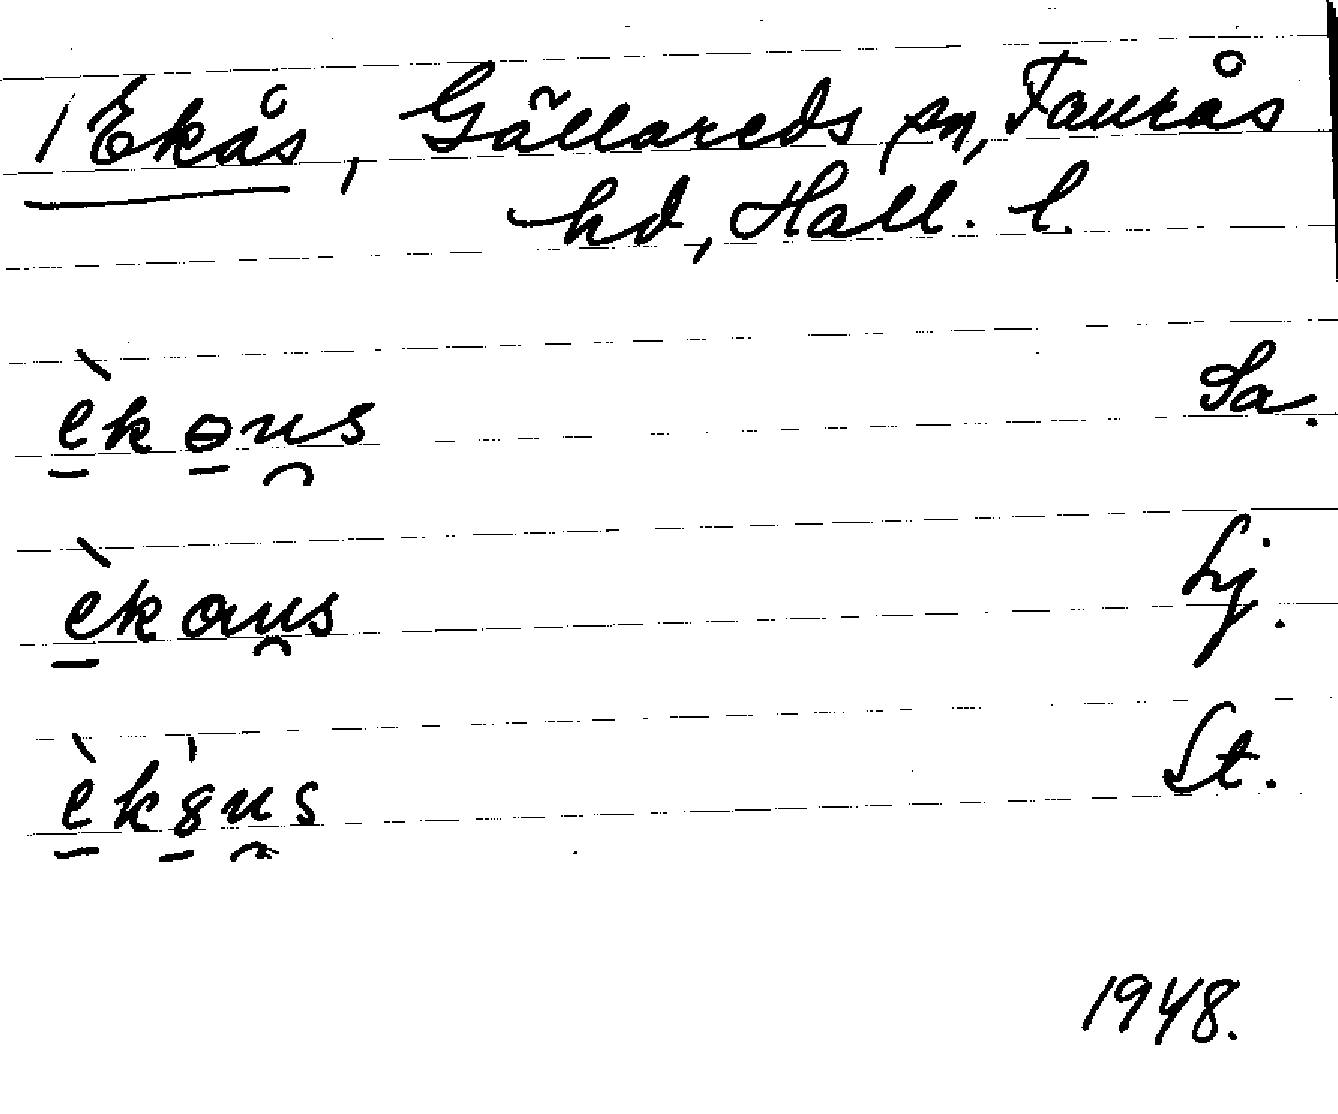 1 Ekås, Gällareds sn, Faurås
hd, Hall. l.
èkɵus Sa.
èkaus Lj.
èk8us St.
1948.